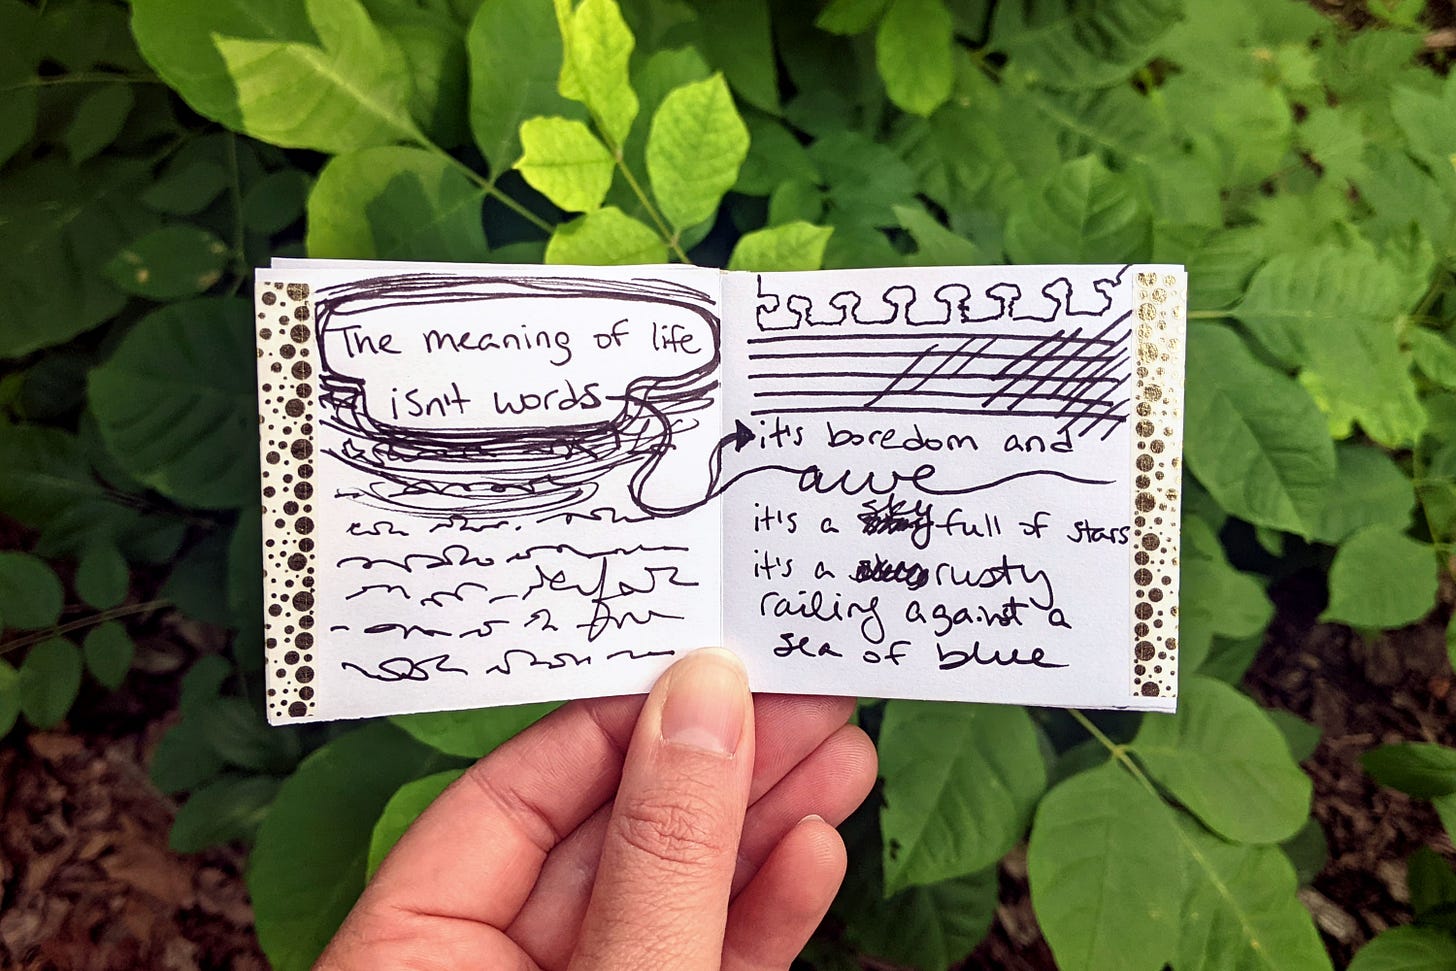 The meaning of life
isn't words
it's boredom and
awe
it's a sky full of stars
it's a rusty
railing against a
sea of blue